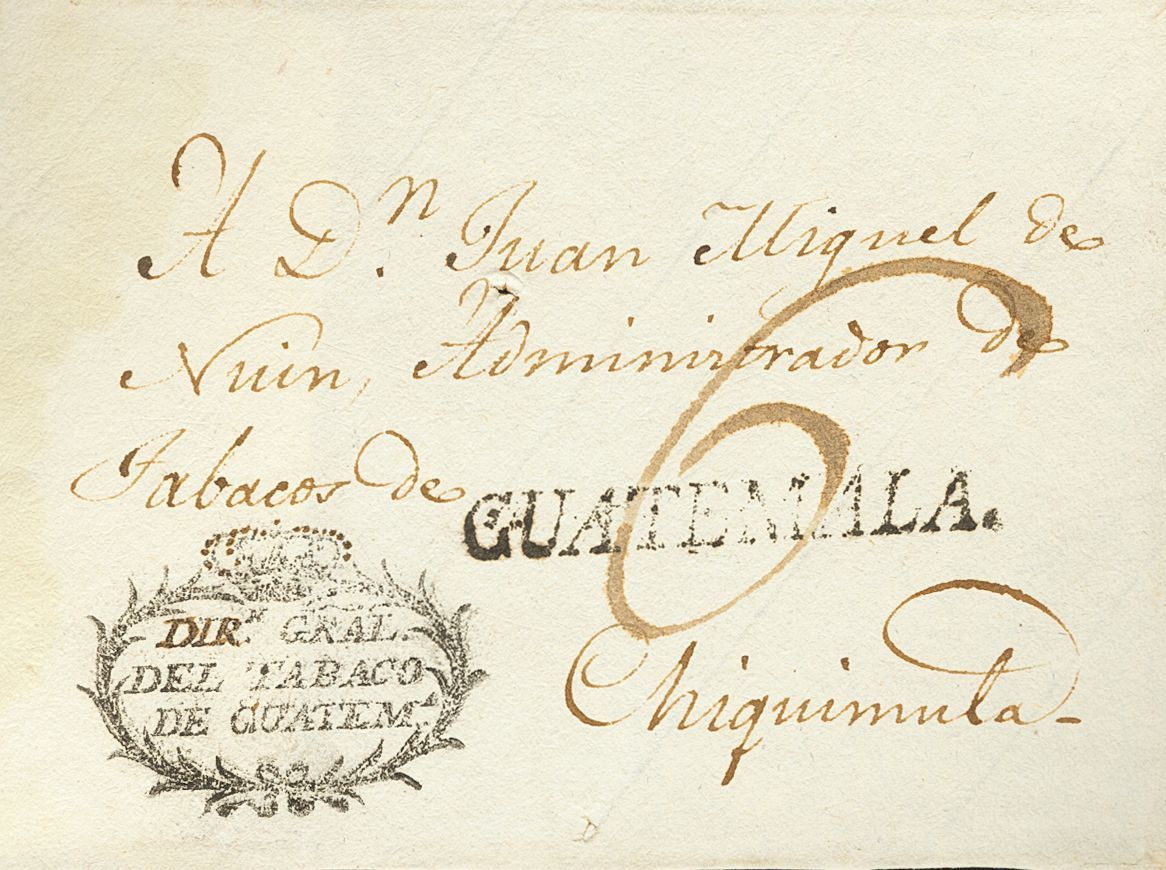 A D.ⁿ Juan Miguel de
Nuin, Administrador de
Tabacos de
GUATEMALA.
6
Chiquimula-
DIR.ⁿ GRAL.
DEL TABACO
DE GUATEM.ᴬ